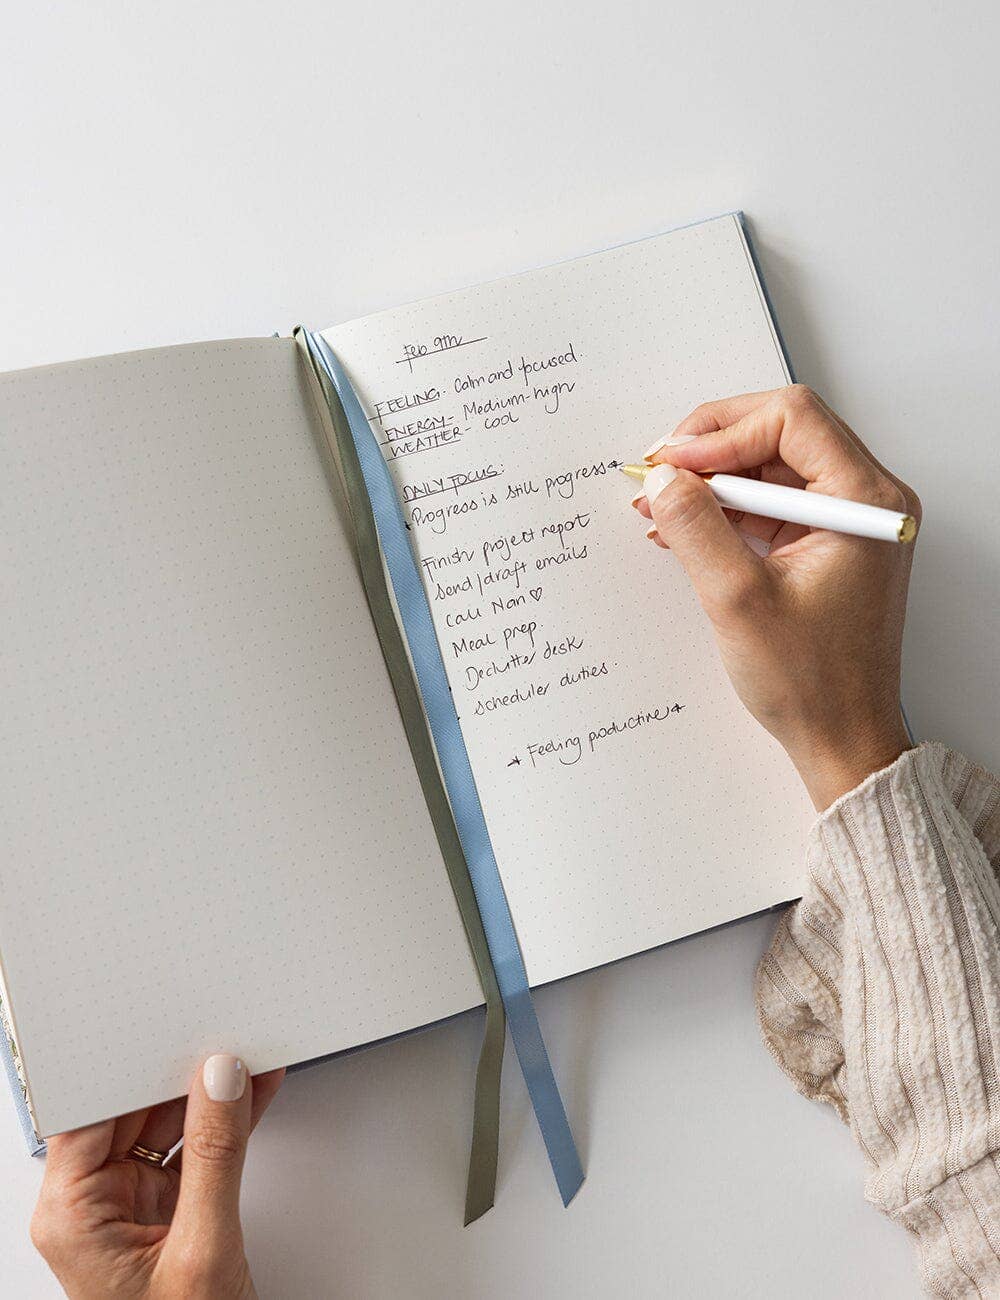 Feb 9th
FEELING - Calm and focused.
ENERGY - Medium-high
WEATHER - cool
DAILY FOCUS:
★Progress is still progress★
Finish project report
Send/draft emails
Call Nan♡
Meal prep.
Declutter desk
Scheduler duties.
★ Feeling productive★